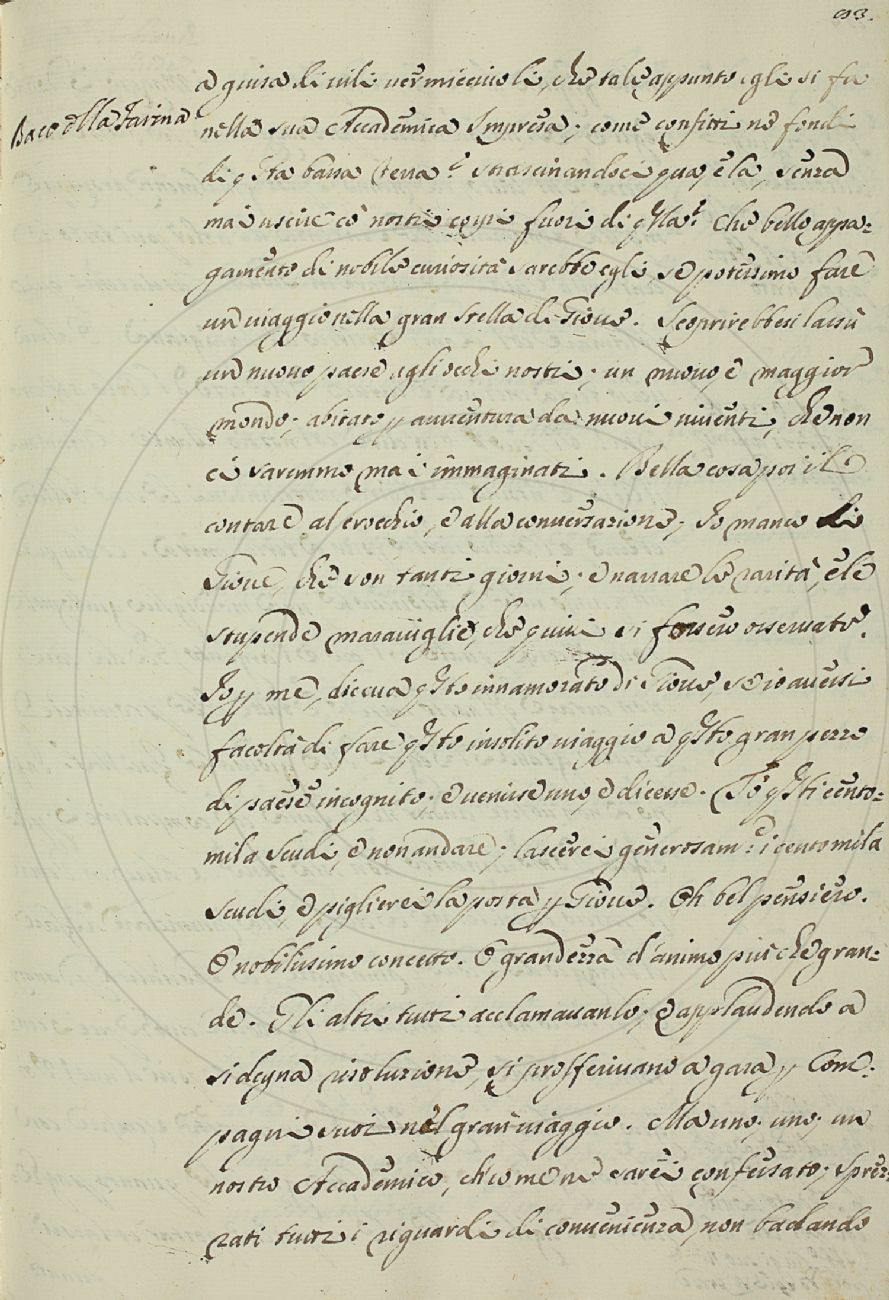 93.
Baco d'lla Farina
a guisa di vili vermiccivoli, che tale appunto egli si fa
nella sua Accademica Impresa; come confitti nè fondi
di q'sta bassa terra? strascinandoci qua, e là, senza
mai uscire cò nostri corpi fuori di q'lla? Che bello appa=
gamento di nobile curiosità sarebbe egli, se potessimo fare
un viaggio nella gran stella di Giove. Scoprirebbesi lassù
un nuovo paese agli occhi nostri; un nuovo, e maggior
mondo; abitato p avventura da nuovi viventi, che non
ci saremmo mai immaginati. Bella cosa poi il
contare al crocchio, e alla conversazione; Io manco di
Giove, che son tanti giorni; e narrare le rarità, e le
stupende maraviglie, che quivi si fossero osservate.
Io p me, diceva q'sto innamorato di Giove, se io avessi
facoltà di fare q'sto insolito viaggio a q'sto gran pezzo
di paese incognito; e venisse uno, e dicesse. Tò q'sti cento=
mila scudi, e non andare; lascerei generosam.e i centomila
scudi, e piglierei la posta p Giove. Oh bel pensiero.
O nobilissimo concetto. O grandezza d'animo più che gran=
de. Gli altri tutti acclamavanlo; e applaudendo a
sì degna risoluzione, si profferivano a gara p Com=
pagni suoi nel gran viaggio. Ma uno, uno, un
nostro Accademico, ch'io me ne sarei confessato; sprez=
zati tutti i riguardi di convenienza, non badando